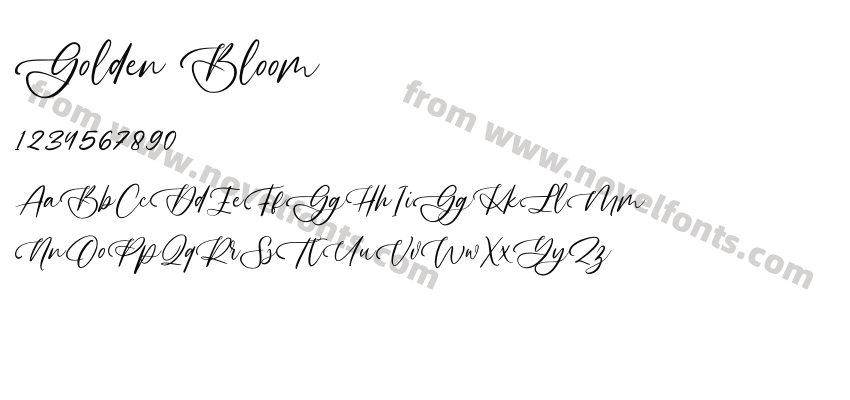 Golden Bloom
1234567890
AaBbCcDdEeFfGgHhIiGgKkLlMm
NnOoPpQqRrSsTtUuVvWwXxYyZz
from www.novelfonts.com
from www.novelfonts.com